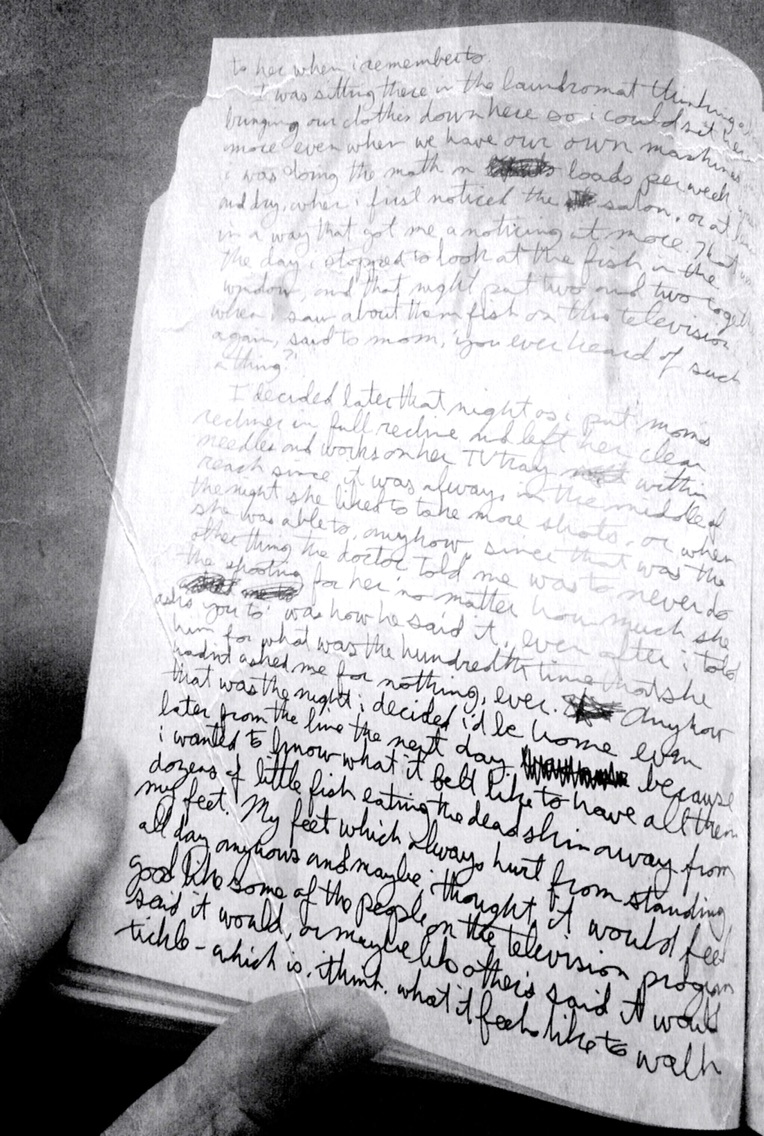 to her when i remember to
I was sitting there in the laundromat thinking
bringing our clothes down here so i could sit
more even when we have our own machines
i was doing the math in loads per week
and dry, when i first noticed the salon, or at
in a way that got me a noticing it more. That
the day i stopped to look at the fish in the
window, and that night put two and two
when i saw about them fish on the television
again, said to mom, "you ever heard of such
a thing?"
I decided later that night as i put moms
recliner in full recline and left her clean
needles and works on her TV tray within
reach since it was always in the middle of
the night she liked to take more shots, or when
she was able to, anyhow since that was the
other thing the doctor told me was to never do
the shooting for her 'no matter how much she
asks you to' was how he said it, even after i told
him for what was the hundredth time that she
hadn't asked me for nothing, ever. Anyhow
that was the night i decided i'd be home even
later from the line the next day because
i wanted to know what it felt like to have all them
dozens of little fish eating the dead skin away from
my feet. My feet which always hurt from standing
all day anyhows and maybe, i thought, it would feel
good like some of the people on the television program
said it would, or maybe like others said it would
tickle – which is, i think, what it feels like to walk